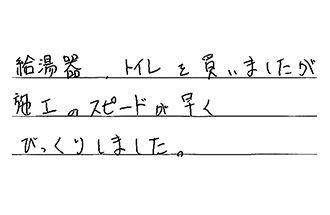 給湯器、トイレを買いましたが
施工のスピードが早く
びっくりしました。